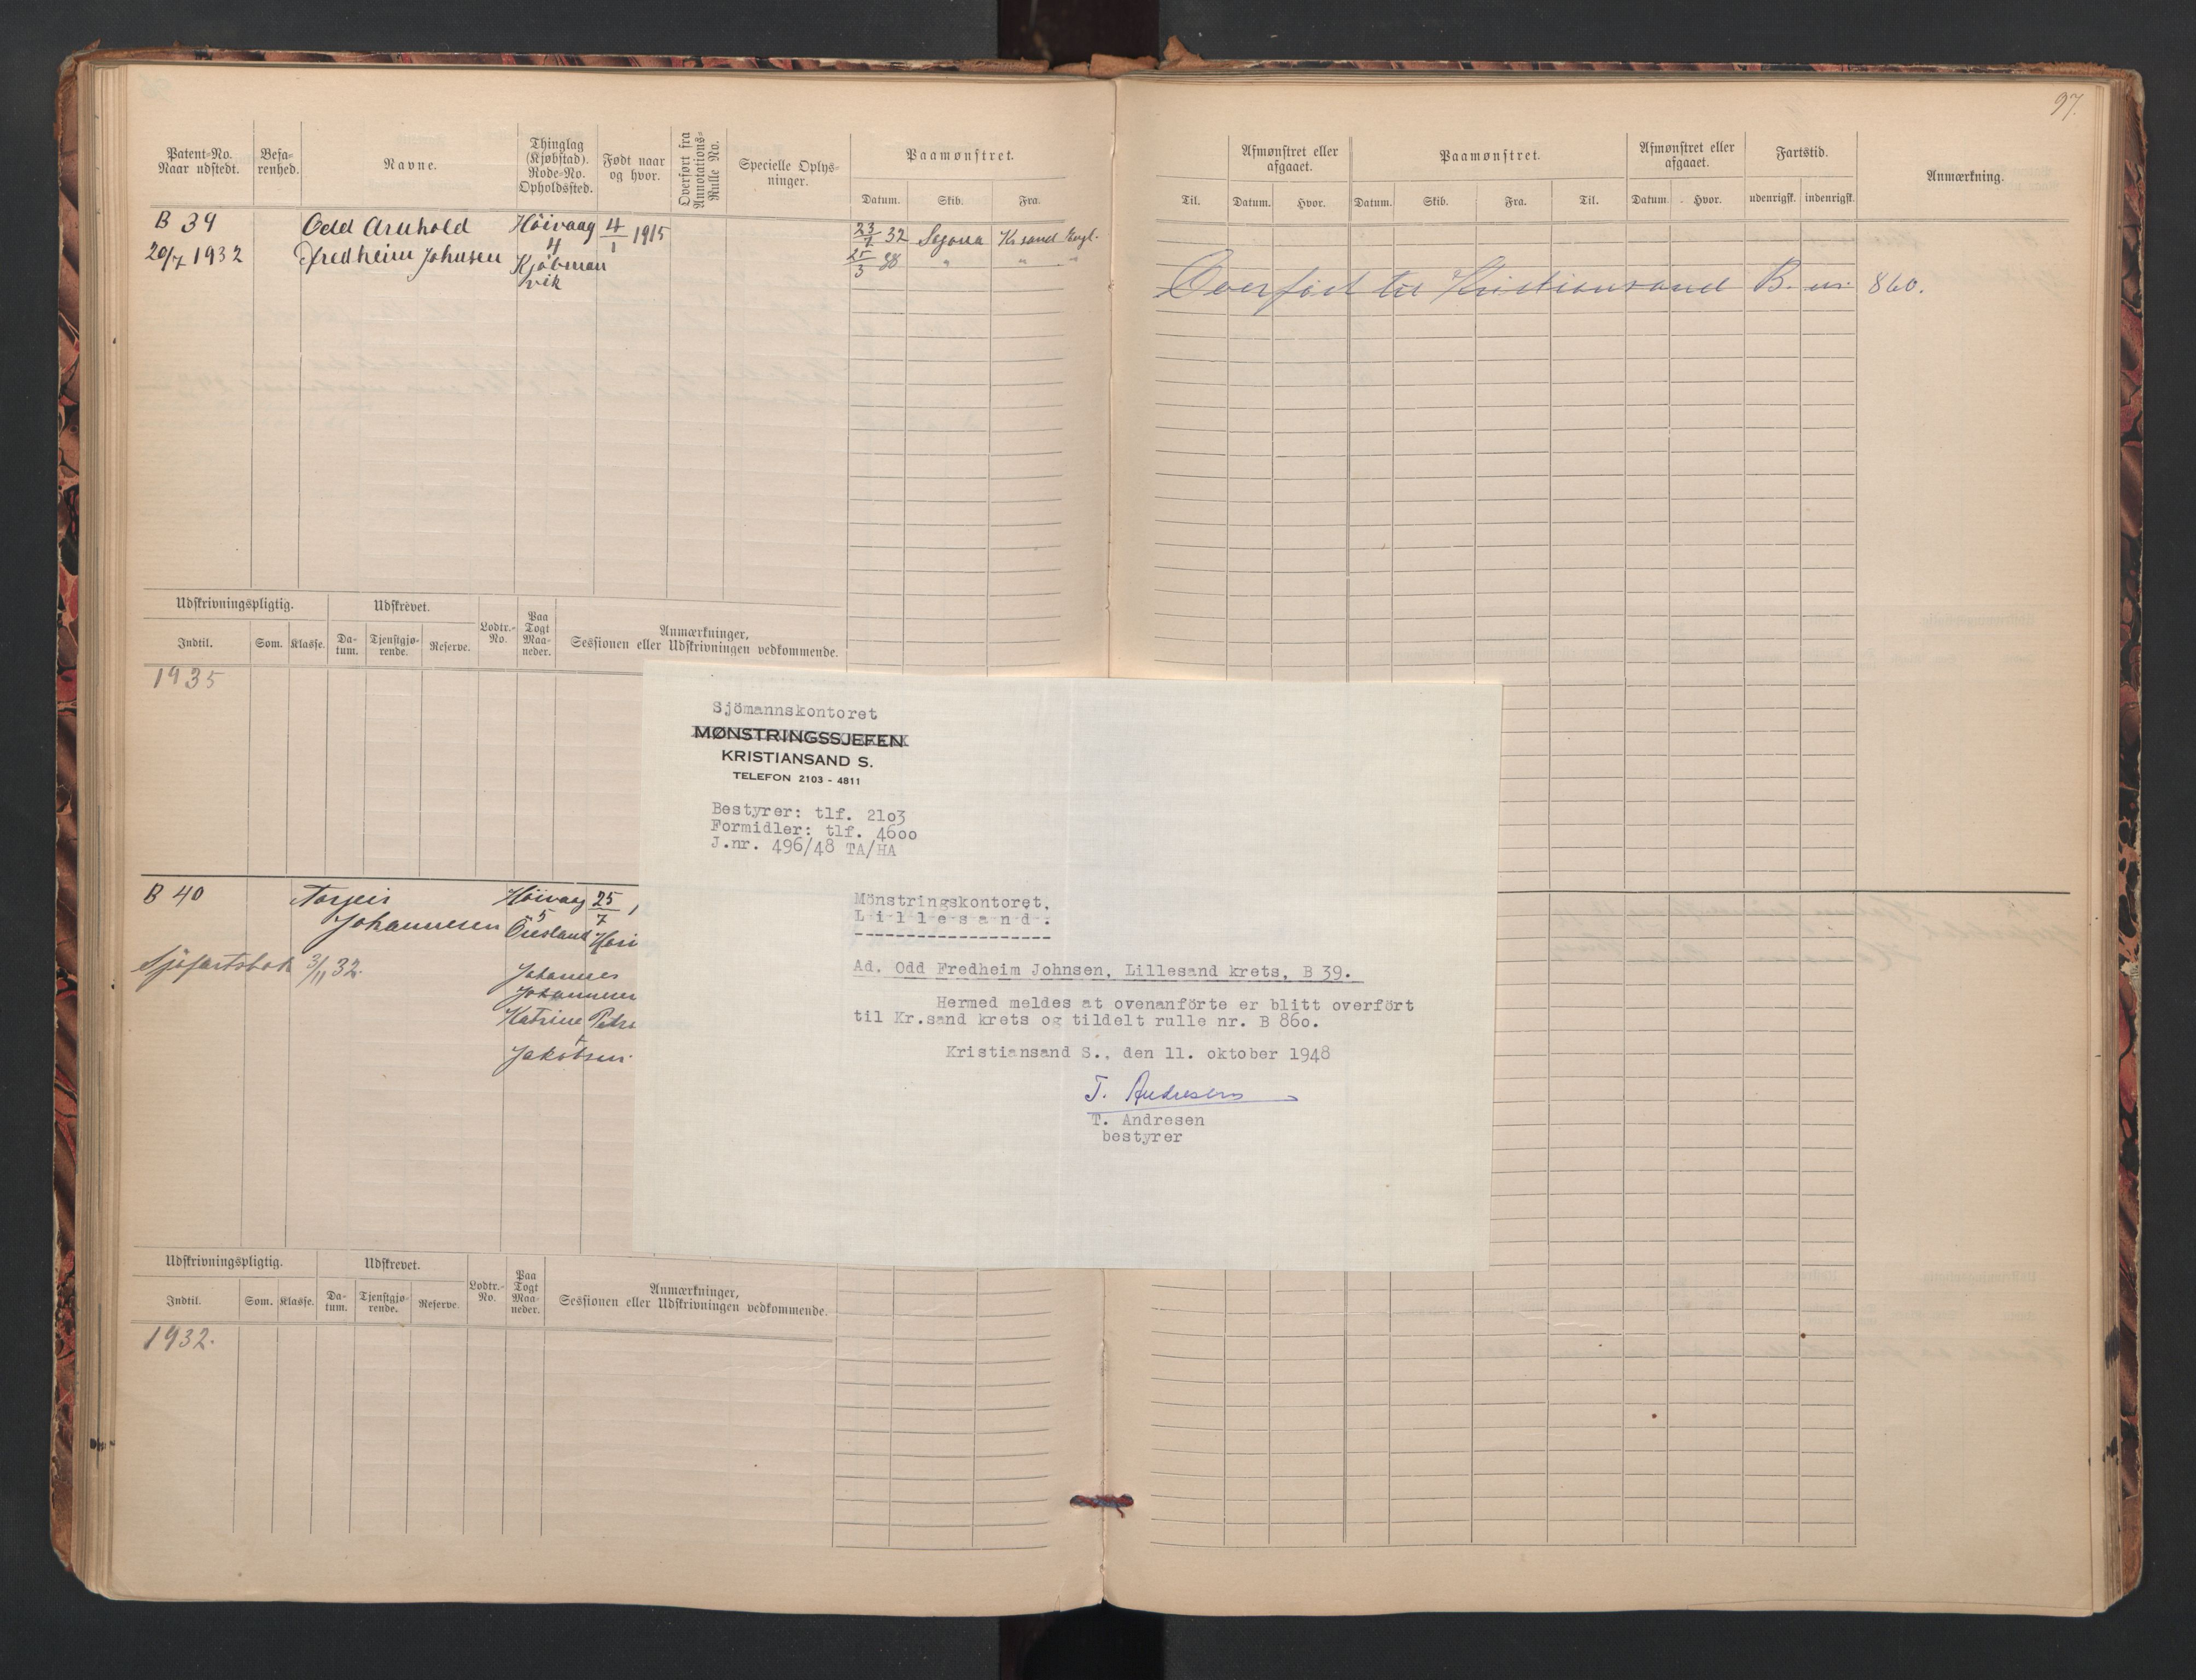 97.
Patent-No. Naar udstedt.
Befarenhed.
Navne.
Thinglag (Kjøbstad). Rode-No. Opholdssted.
Født naar og hvor.
Overført fra Annotations-Rulle No.
Specielle Oplys-ninger.
Paamønstret.
Datum. Skib. Fra.
Til.
Afmønstret eller afgaaet.
Datum. Hvor.
Paamønstret.
Datum. Skib. Fra. Til.
Afmønstret eller afgaaet.
Datum. Hvor.
Fartstid.
udenrigsk. indenrigsk.
Anmærkning.
B 39 Odd Arnhold Höivaag 4/1 1915 23/7 32 Segona Kr.sand Engl.
20/7 1932 Fredheim Johnsen 4 25/3 38 " " "
Kjöbman
vik
Overfört til Kristiansand B. nr. 860.
Udskrivningspligtig.
Indtil. Som. Klasse.
Udskrevet.
Da-tum. Tjenstgjø-rende. Reserve.
Lodtr.-No.
Paa Togt Maa-neder.
Anmærkninger,
Sessionen eller Udskrivningen vedkommende.
1935
Sjömannskontoret
MØNSTRINGSSJEFEN
KRISTIANSAND S.
TELEFON 2103 - 4811
Bestyrer: tlf. 21o3
Formidler: tlf. 46oo
J.nr. 496/48 TA/HA
Mönstringskontoret,
L i l l e s a n d .
-------------------
Ad. Odd Fredheim Johnsen, Lillesand krets, B 39.
Hermed meldes at ovenanförte er blitt overfört
til Kr.sand krets og tildelt rulle nr. B 86o.
Kristiansand S., den 11. oktober 1948
T. Andresen
T. Andresen
bestyrer
B 40 Torgeir Höivaag 25/7
Johannesen 5
Sjöfartsbok 3/11 32.
Johannes
Johannesen
Katrine
Jakobsen.
Udskrivningspligtig.
Indtil. Som. Klasse.
Udskrevet.
Da-tum. Tjenstgjø-rende. Reserve.
Lodtr.-No.
Paa Togt Maa-neder.
Anmærkninger,
Sessionen eller Udskrivningen vedkommende.
1932.